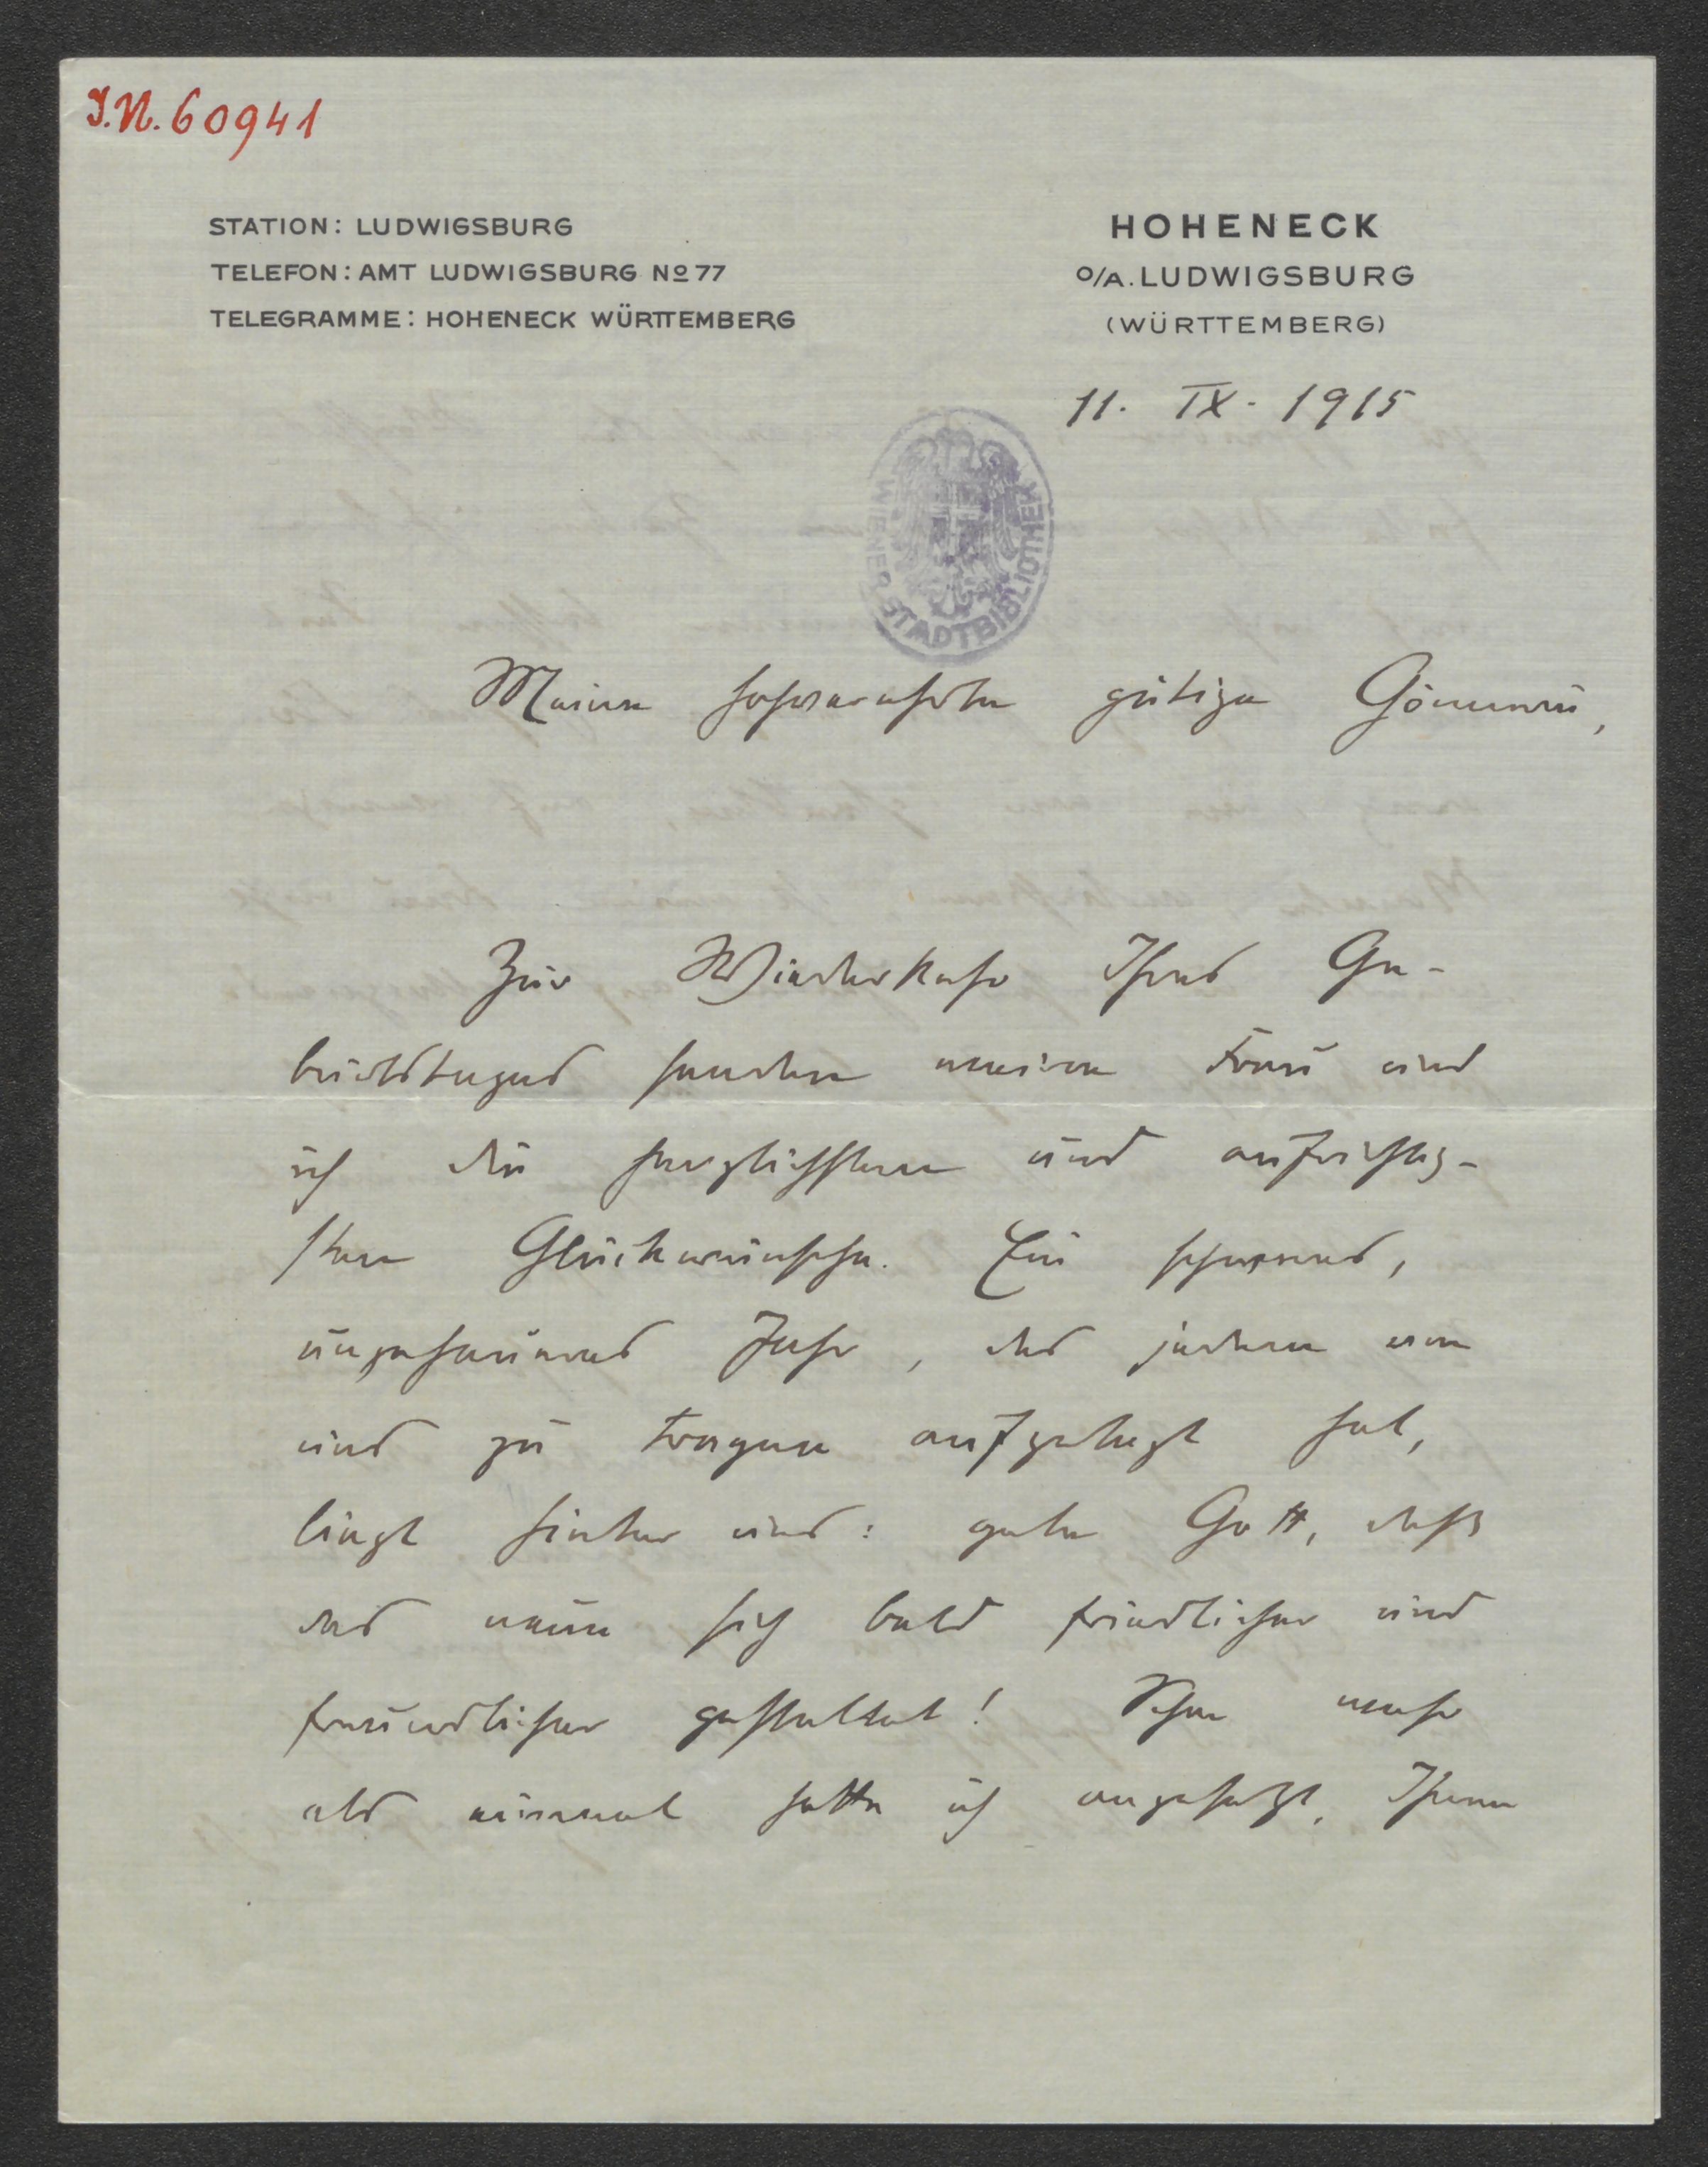 I.N. 60941
STATION: LUDWIGSBURG
TELEFON: AMT LUDWIGSBURG Nº 77
TELEGRAMME: HOHENECK WÜRTTEMBERG
HOHENECK
O/A. LUDWIGSBURG
(WÜRTTEMBERG)
11. IX. 1915
WIENER STADTBIBLIOTHEK
Meine hochverehrte gütige Gönnerin,
Zur Wiederkehr Ihres Ge-
burtstages senden meine Frau und
ich die herzlichsten und aufrichtig-
sten Glückwünsche. Ein schweres,
ungeheures Jahr, das jedem von
uns zu tragen auferlegt hat,
liegt hinter uns: gebe Gott, daß
das neue sich bald friedlicher und
freundlicher gestaltet! Schon mehr
als einmal hatte ich angesetzt, Ihnen